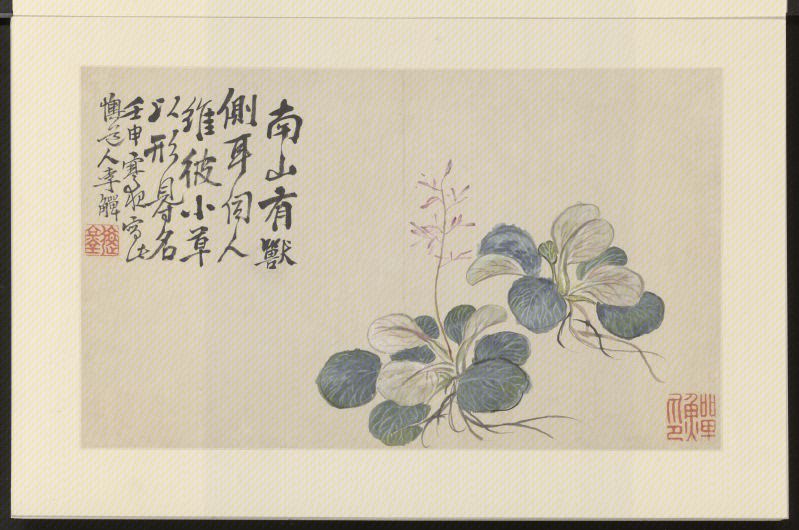 南山有獸
側耳伺人
維彼小草
以形㝵名
壬申寒夜寫
懊道人李鱓